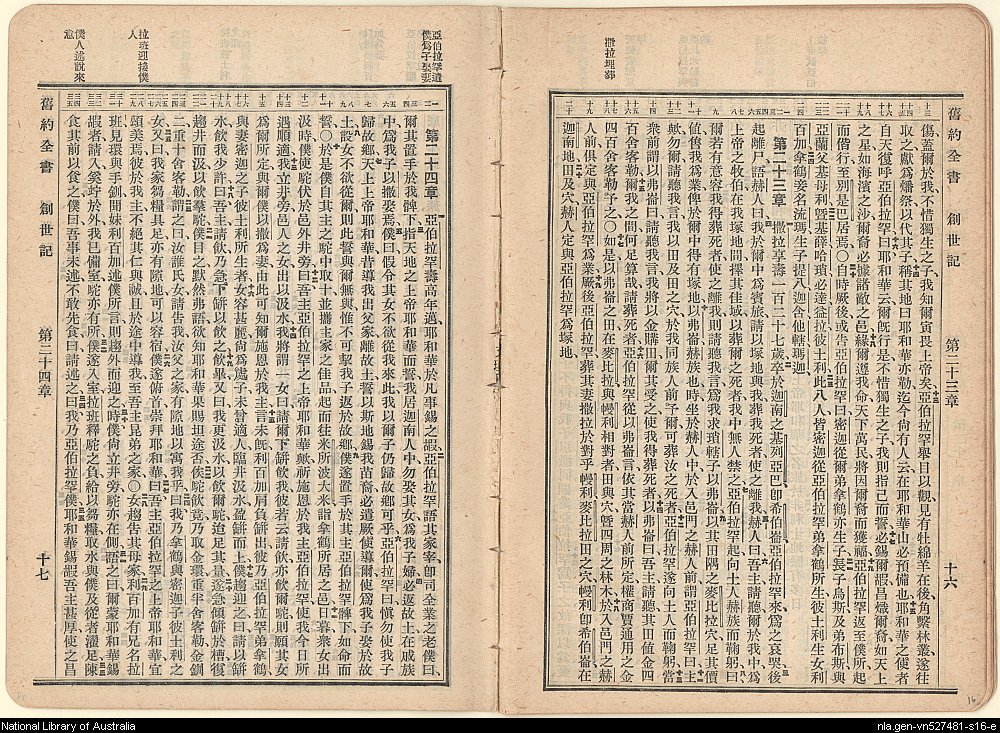 舊約全書 創世記 第二十三章 十六
傷、蓋爾於我、不惜獨生之子、我知爾寅畏上帝矣、亞伯拉罕舉目以觀、見有牡綿羊在後、角繫林叢、遂往
取之、獻爲燔祭、以代其子、稱其地曰耶和華亦勒、迄今尚有人云、在耶和華山必預備也、耶和華之使者
自天復呼亞伯拉罕曰、耶和華云、爾旣行是、不惜獨生之子、我則指己而誓、必錫爾嘏、昌熾爾裔、如天上
之星、如海濱之沙、爾裔必據諸敵之邑、緣爾遵我命、天下萬民將因爾裔而獲福、亞伯拉罕返至僕所、起
而偕行、至別是巴居焉、○自時厥後、或告亞伯拉罕曰、密迦從爾弟拿鶴亦生子、長子烏斯、及弟布斯、與
亞蘭父基母利、曁基薛哈瑣必達益拉彼土利、此八人皆密迦從亞伯拉罕弟拿鶴所生、彼土利生女利
百加、拿鶴妾名流瑪、生子提八迦含他轄瑪迦、
第二十三章 撒拉享壽一百二十七歲、卒於迦南之基列亞巴、卽希伯崙、亞伯拉罕來爲之哀哭、後
起離尸、語赫人曰、我於爾中爲賓旅、請以塚地與我、葬我死者、使之離我、赫人曰、吾主請聽、爾於我中、爲
上帝之牧伯、在我塚地間、擇其佳域、以葬爾之死者、我中無人禁之、亞伯拉罕起、向土人赫族而鞠躬、曰、
爾若有意容我得葬死者、使之離我、則請聽我言、爲我求瑣轄子以弗崙、以其田隅之麥比拉穴、足其價
值、售我爲業、俾於爾中得有塚地、以弗崙赫族也、時坐於赫人中、於入邑門之赫人前、語亞伯拉罕曰、吾主
歟、勿爾、請聽我言、我以田及田之穴、於我同族人前予爾、可葬汝之死者、亞伯拉罕遂向土人而鞠躬、當
衆前謂以弗崙曰、請聽我言、我將以金購田、爾其受之、使我得葬死者、以弗崙曰、吾主請聽我言、其田值金四
百舍客勒、爾我之間、何足算哉、請葬死者、亞伯拉罕從以弗崙言、依其當赫人前所定、權商賈通用之金
四百舍客勒予之、○如是以弗崙之田、在麥比拉、與幔利相對者、田與穴、曁四周之林木、於入邑門之赫
人前、俱定與亞伯拉罕爲業、厥後亞伯拉罕葬其妻撒拉於對乎幔利麥比拉田之穴、幔利卽希伯崙、在
迦南地、田及穴、赫人定與亞伯拉罕爲塚地、
撒拉埋葬
亞伯拉罕遣
僕爲子娶妻
拉班迎接僕
人
僕人述說來
意
第二十四章 亞伯拉罕壽高年邁、耶和華於凡事錫之嘏、亞伯拉罕語其家宰、卽司全業之老僕曰、
爾其置手於我髀下、指天地之上帝耶和華而誓、我居迦南人中、勿娶其女爲我子婦、必返故土、在戚族
中爲我子以撒娶焉、僕曰、假令其女不欲從我來此、我可攜爾子仍歸故鄕乎、亞伯拉罕曰、愼勿使我子
歸故鄕、天上上帝耶和華、昔導我出父家、離故土、誓以斯地錫我苗裔、必遣厥使導爾、使爲我子娶於故
土、設女不欲從爾、則此誓與爾無與、惟不可挈我子返於故鄕、僕遂置手於其主亞伯拉罕髀下、如命而
誓、○於是僕自其主之駝中取十、並攜主家之佳品、起而往米所波大米、詣拿鶴所居之邑、日暮、衆女出
汲時、僕使駝伏於邑外井旁、曰、吾主亞伯拉罕之上帝耶和華歟、祈施恩於我主亞伯拉罕、使我今日所
遇順適、我立井旁、邑人之女出以汲水、我將謂一女曰、請爾下缾飲我、彼若云、請飲、亦飲爾駝、則願其女
爲爾所定、與爾僕以撒爲妻、由此可知爾施恩於我主、言未旣、利百加肩負缾出、彼乃亞伯拉罕弟拿鶴
與妻密迦之子彼土利所生者、女容甚麗、尙爲處子、未曾適人、臨井汲水、盈缾而上、僕趨迎之曰、請以缾
水飲我少許、曰、吾主、請飲、乃急下缾、以飲之、飲畢、又曰、我更汲水以飲爾駝、迨足其量、遂急傾缾於槽、復
趨井而汲、以飲羣駝、僕目之默然、弗語、欲知耶和華果賜坦途否、俟駝飲竟、乃取金環重半舍客勒、金釧
二、重十舍客勒、謂之曰、汝誰氏女、請告我、汝父之家有隙地以寓我乎、曰、我乃拿鶴與密迦子彼土利之
女、又曰、我家芻糧具足、亦有隙地、可以容宿、僕遂俯首、崇拜耶和華、曰、吾主亞伯拉罕之上帝耶和華、宜
頌美焉、彼於我主、不絕其仁、眞誠且於途中導我至吾主昆弟之家、○女趨告其母家、利百加有兄名拉
班、見環與手釧、聞妹利百加述僕所言、則趨外而迎之、時僕尙立井旁、駝亦在側、語之曰、爾蒙耶和華錫
嘏者、請入、奚竚於外、我已備室、駝亦有所、僕遂入室、拉班釋駝之負、給以芻糧、取水與僕及從者濯足、陳
食其前、以食之、僕曰、吾事未述、不敢先食、曰、請述之、曰、我乃亞伯拉罕僕、耶和華錫嘏吾主甚厚、使之昌
舊約全書 創世記 第二十四章 十七
16
National Library of Australia
nla.gen-vn527481-s16-e